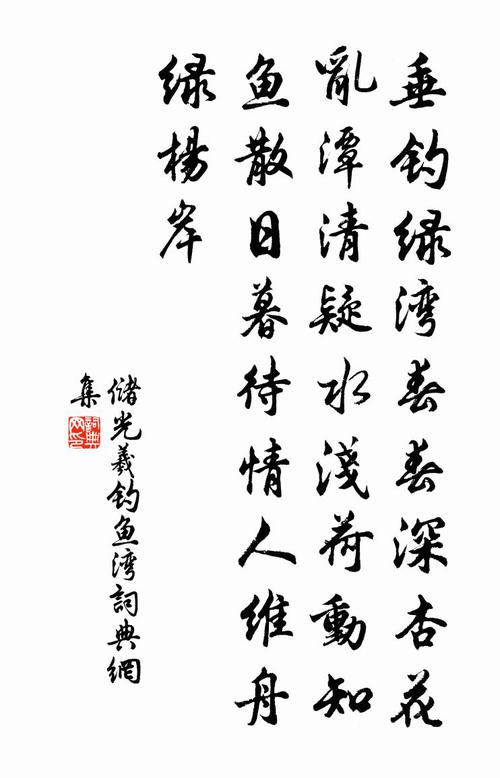 垂钓绿湾春春深杏花
亂潭清疑水淺荷動知
鱼散日暮待情人维舟
绿楊岸
儲光羲钓鱼湾詞典網
集
詞典
网印